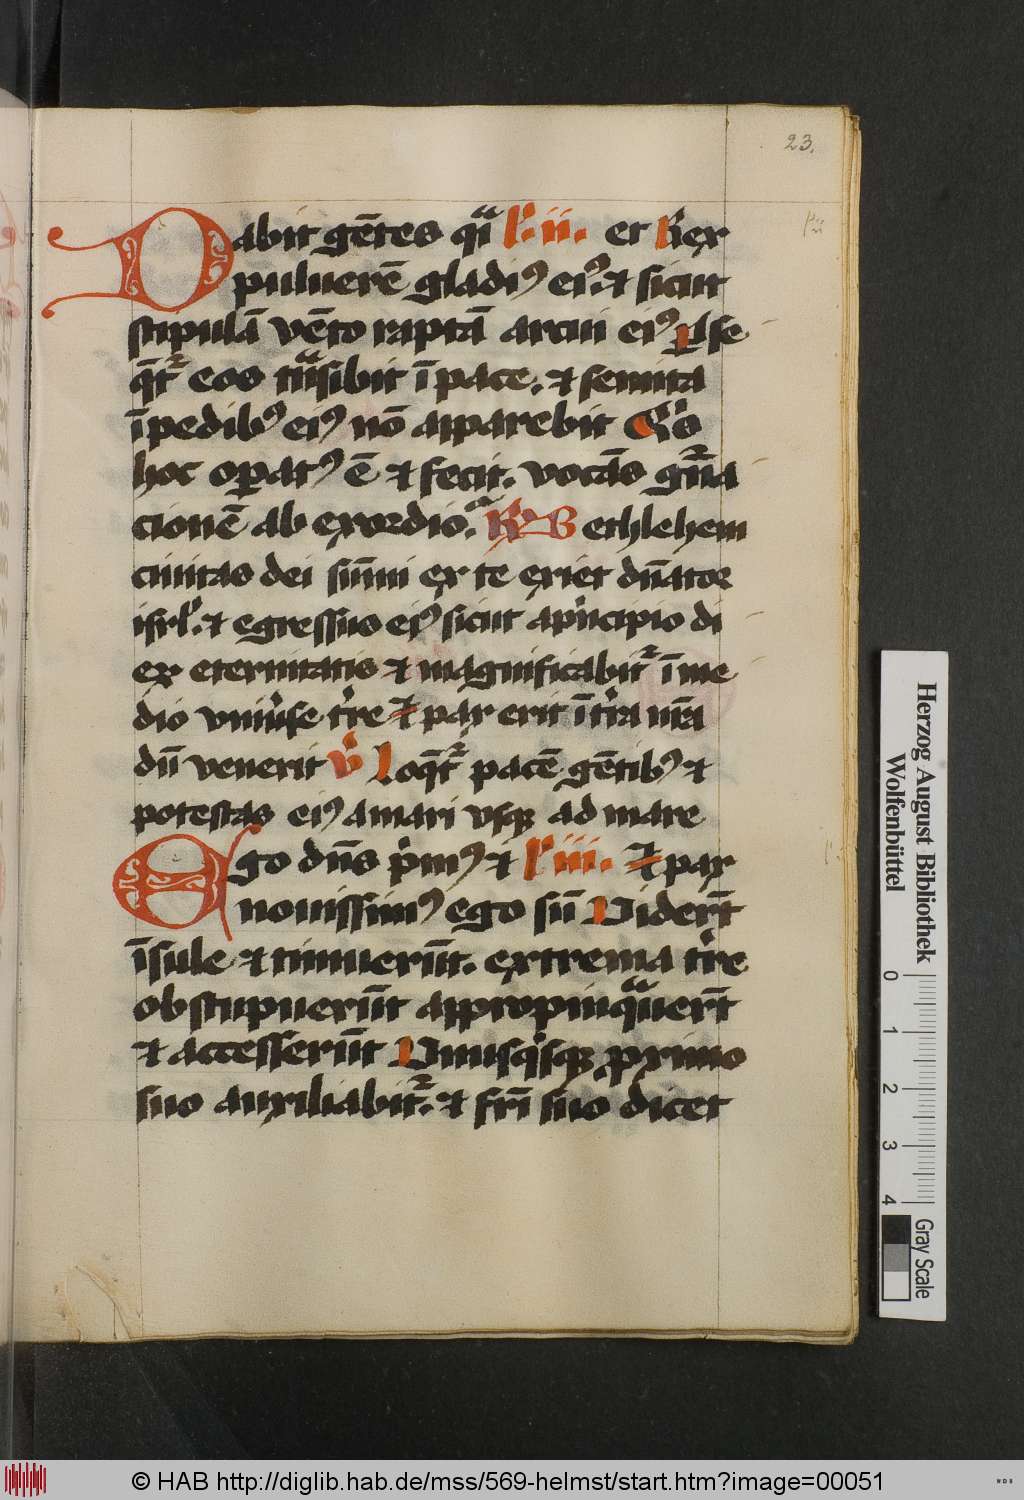 23.
Dabit gētes qͣi l'. ii. et Rex
puluerē gladiꝰ eiꝰ. ⁊ sicut
stipulā vēto raptā arcui eiꝰ ꝑse
q̄tͬ eos tͣnsibit ī pace. ⁊ semita
ī pedibꝰ eiꝰ nō apparebit Qͥs
hoc oꝑatꝰ ē ⁊ fecit. vocās gn̄a
cionē ab exordio. R Bethlehem
ciuitas dei sūmi ex te exiet dn̄ator
isrl'. ⁊ egressus eiꝰ sicut apͥncipio di
ex eternitatis ⁊ magnificabitͬ ī me
dio vniūse tr̄e ⁊ pax erit ī tr̄a nr̄a
dū venerit V Loq̄tͬ pacē gētibꝰ ⁊
potestas eiꝰ amari vsqꝫ ad mare
Ego dn̄s pͥmꝰ ⁊ l' iii. ⁊ pax
nouissimꝰ ego sū Viderūt
īsule ⁊ timuerūt. extrema tr̄e
obstupuerūt appropinqͣuerūt
⁊ accesserūt Vnusqͥsqꝫ ꝓximo
suo auxiliabitͬ. ⁊ fr̄i suo dicet
Herzog August Bibliothek
Wolfenbüttel
0 1 2 3 4
Gray Scale
© HAB http://diglib.hab.de/mss/569-helmst/start.htm?image=00051